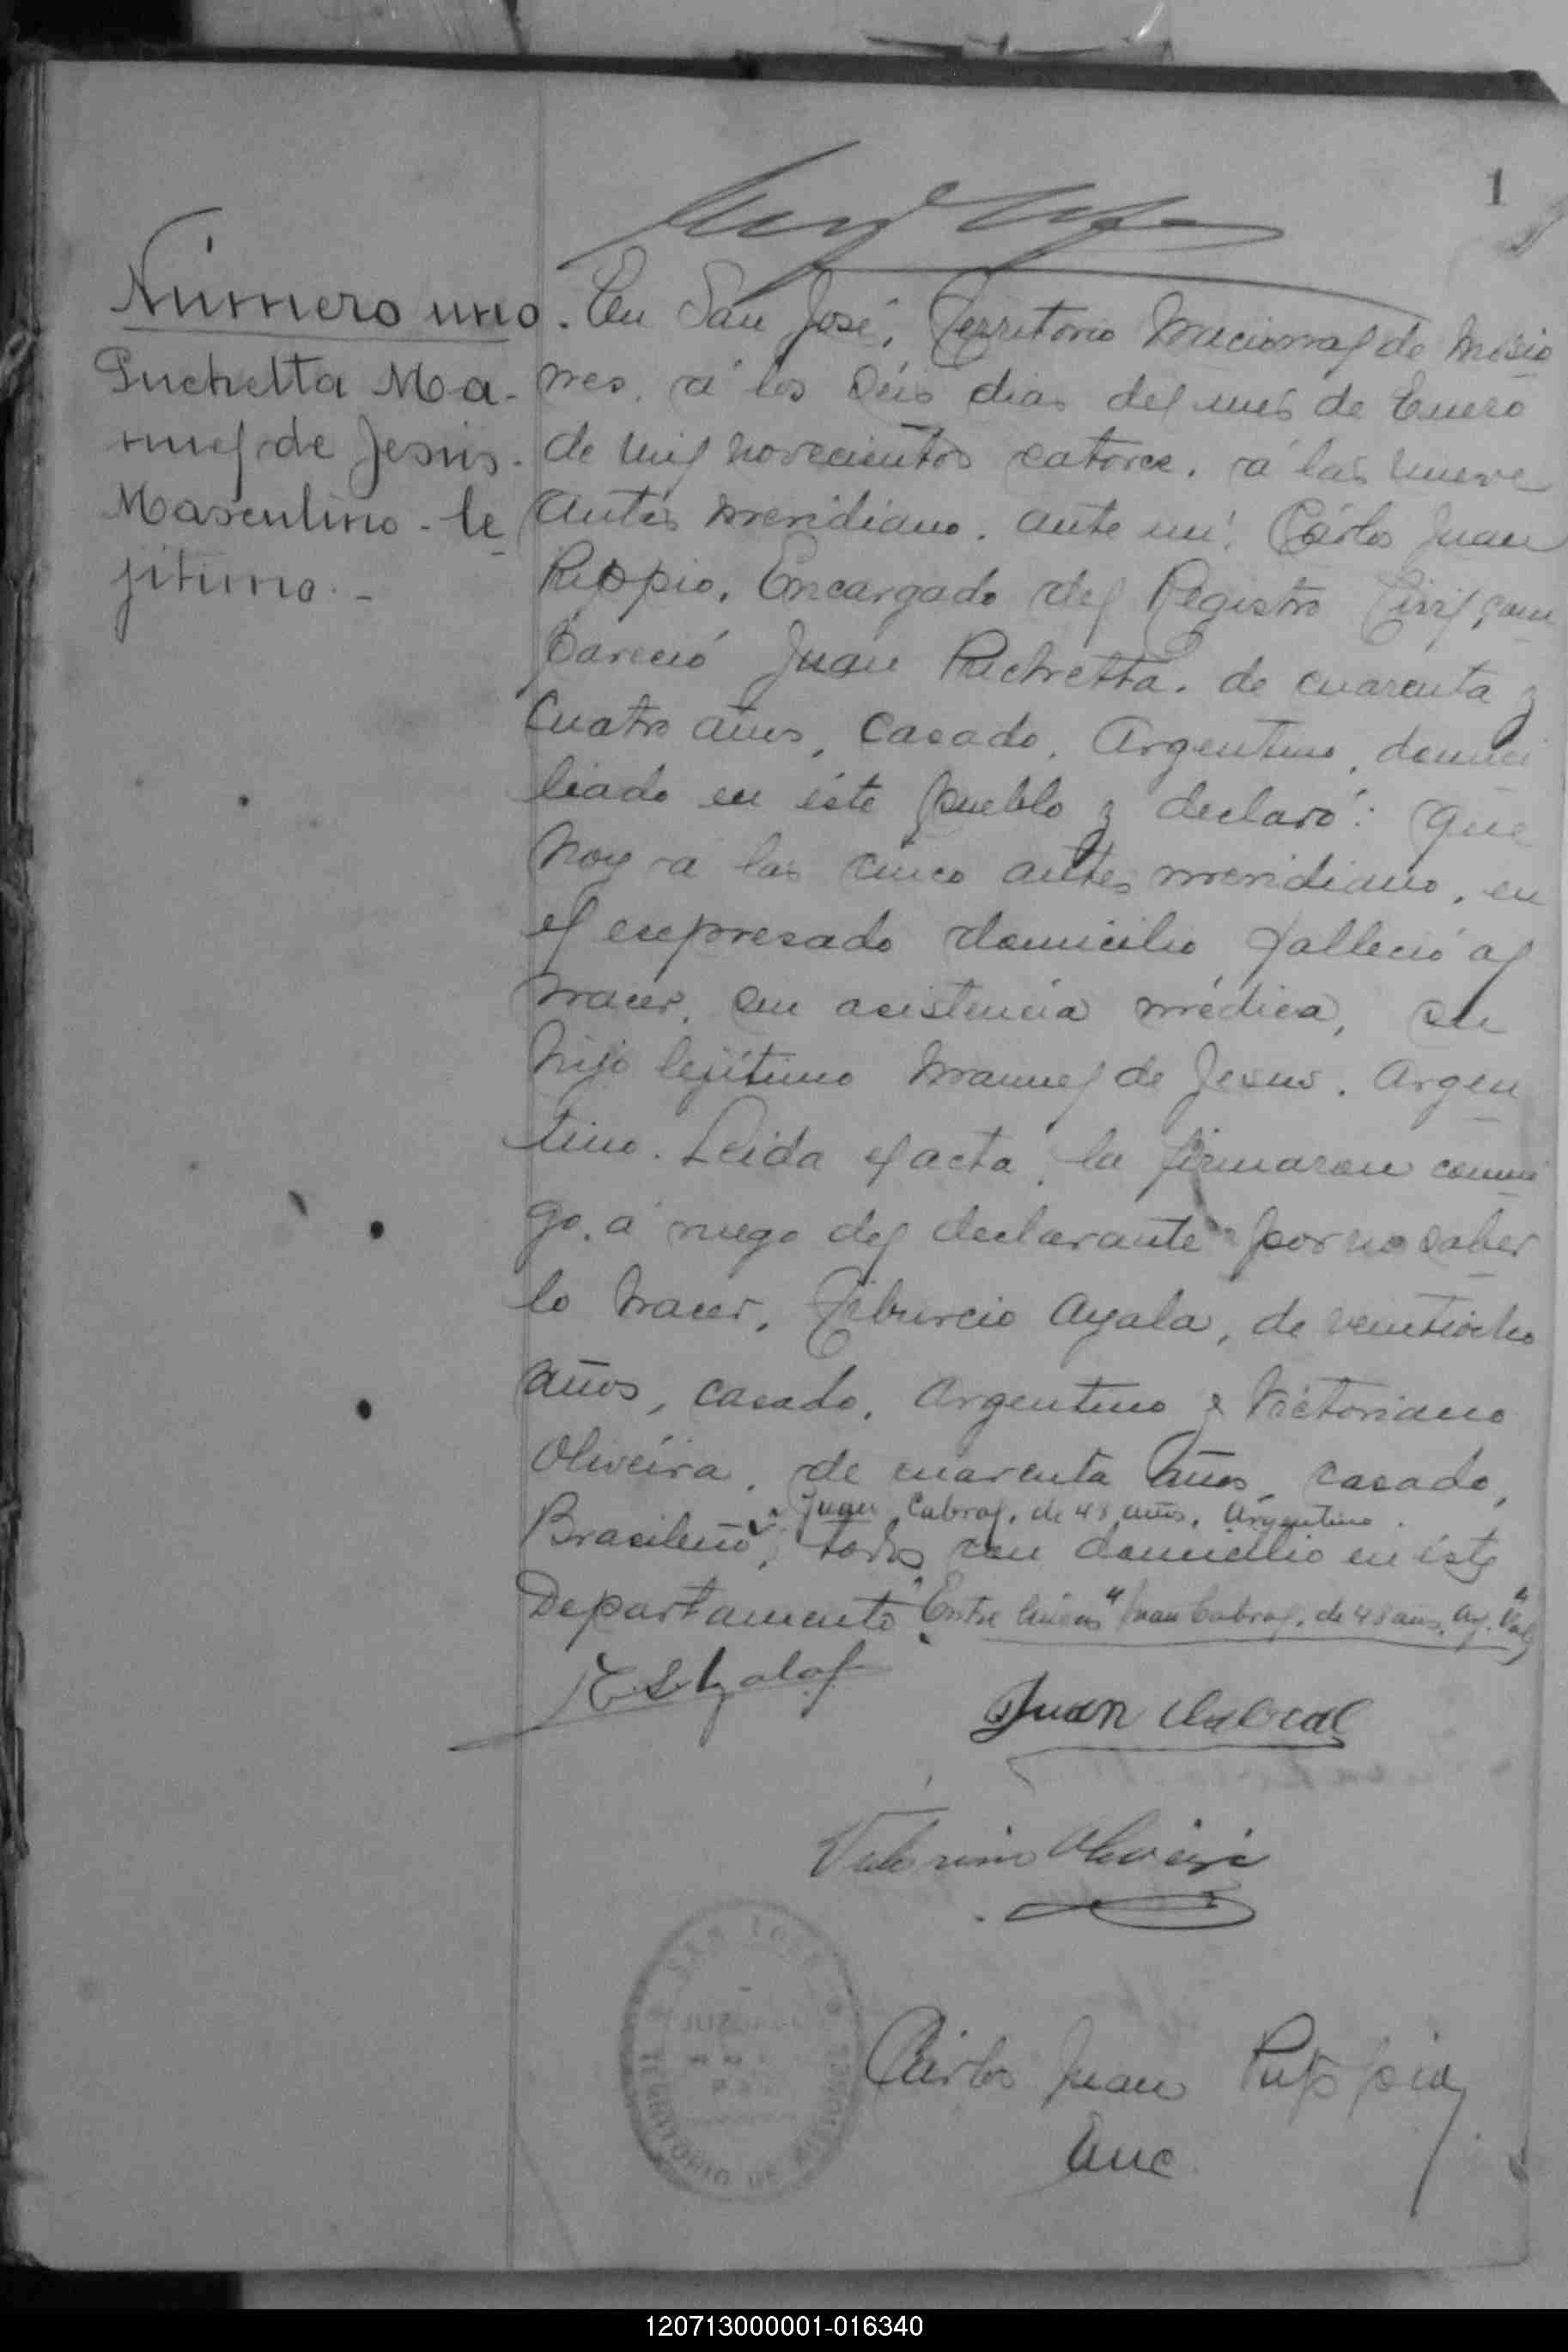 1
Número uno.
Puchetta Ma-
nuel de Jesús.
Masculino - le
jitimo. -
En San José, Territorio Nacional de Misio
nes, á los séis dias del més de Enero
de mil novecientos catorce, á las nueve
antes meridiano, ante mi, Cárlos Juan
Puppio, Encargado del Registro Civil, com
pareció Juan Puchetta, de cuarenta y
cuatro años, casado, Argentino, domici
liado en éste pueblo y declaró: Que
hoy á las cinco antes meridiano, en
el espresado domicilio falleció al
nacer, sin asistencia médica, su
hijo lejítimo Manuel de Jesus, Argen
tino. Leida el acta, la firmaron conmi
go, á ruego del declarante por no saber
lo hacer, Tiburcio Ayala, de veintiocho
años, casado, Argentino y Victoriano
Oliveira, de cuarenta años, casado,
y Juan Cabral, de 48 años, Argentino.
Brasileño, todos con domicilio en éste
Departamento. Entre líneas "Juan Cabral, de 48 años, Arg." Vale
Juan Cabral
Oliveira
SAN JOSE
TERRITORIO DE MISIONES
Cárlos Juan Puppio
Enc
120713000001-016340